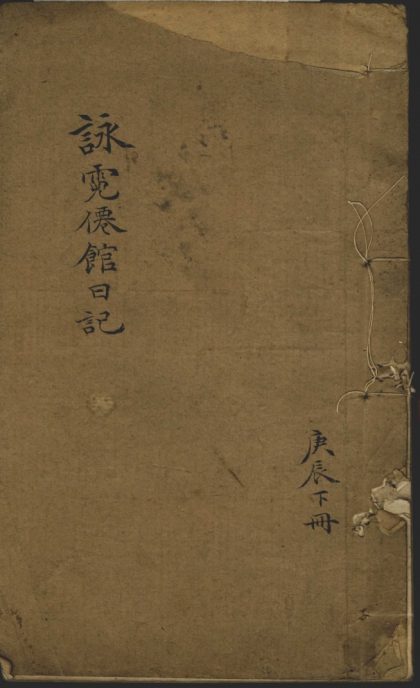 詠霓僊館日記
庚辰下冊